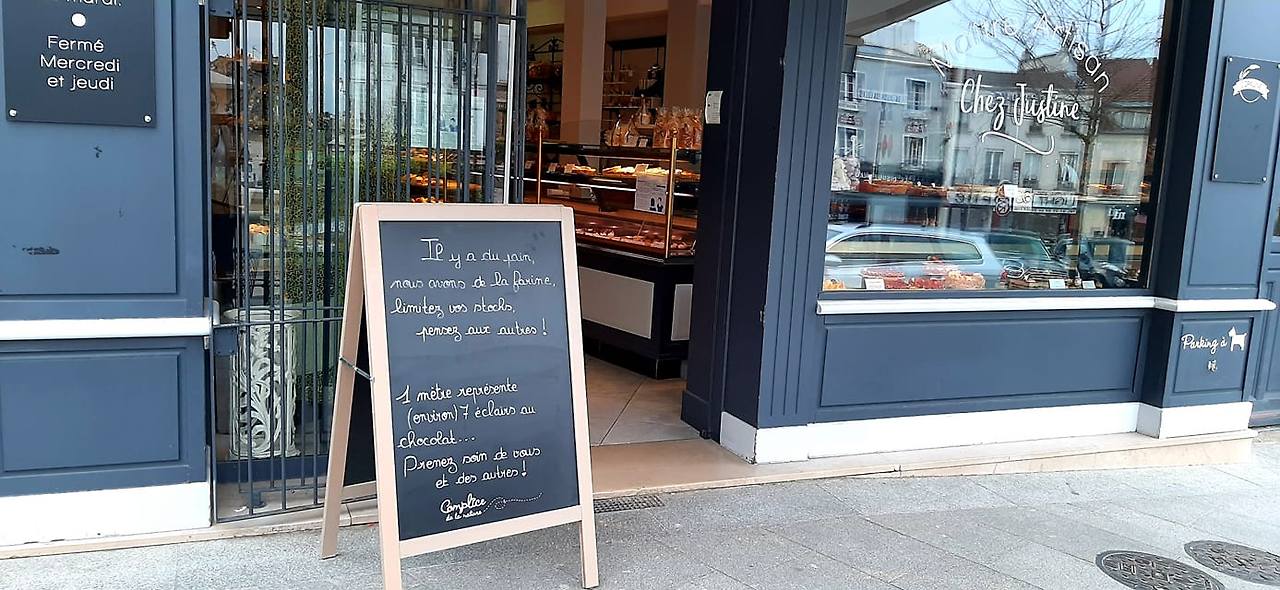 mardi.
Fermé
Mercredi
et jeudi
Il y a du pain,
nous avons de la farine,
limitez vos stocks,
pensez aux autres !
1 mètre représente
(environ) 7 éclairs au
chocolat...
Prenez soin de vous
et des autres !
Complice
de la nature
Artisan
Chez Justine
Parking à